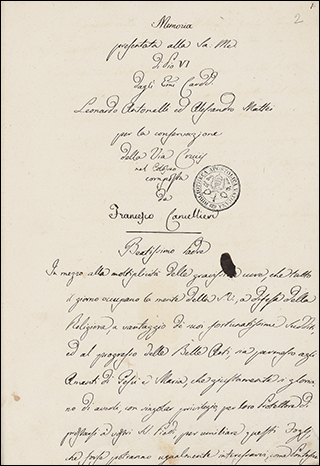 2
Memoria
presentata alla Sa. Me.
Di Pio VI
Dagli Emi Cardd.
Leonardo Antonelli ed Alessandro Mattei
per la conservazione
della Via Crucis
nel Colosseo
composta
Da
Francesco Cancellieri
Beatissimo Padre
In mezzo alla moltiplicità delle gravissime cure, che tutto
il giorno occupano la mente della S. V., a difesa della
Religione, a vantaggio de' suoi fortunatissimi sudditi,
ed al progresso delle Belle Arti, sia permesso agli
Amanti di Gesù e Maria, che giustamente si gloria-
no di averla, con singolar privilegio, per loro Protettore di
prostrarsi a' vostri SS. Piedi per umiliare questi fogli,
che forse potranno ugualmente interessarvi, come